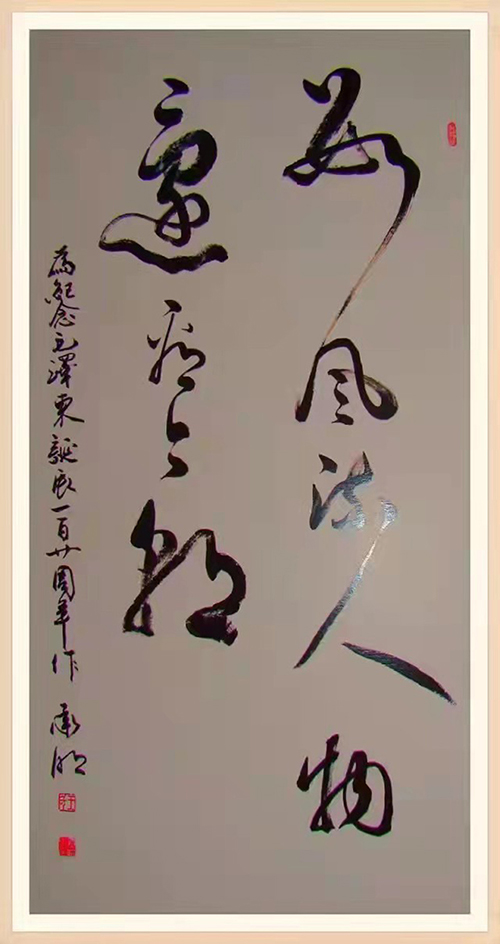 數風流人物
還看今朝
為紀念毛澤東誕辰一百廿周年作 承